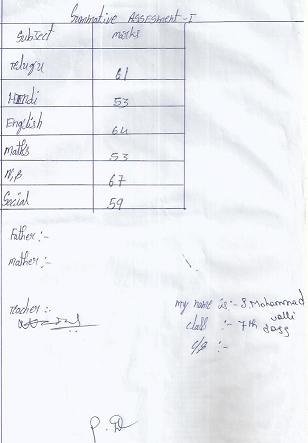 Summative Assesment - I
Subject marks
Telugu 61
Hindi 53
English 64
Maths 53
N.S 67
Social 59
Father :-
Mather :-
Teacher :-
my name is :- S. Mohammad
valli
class :- 7th class